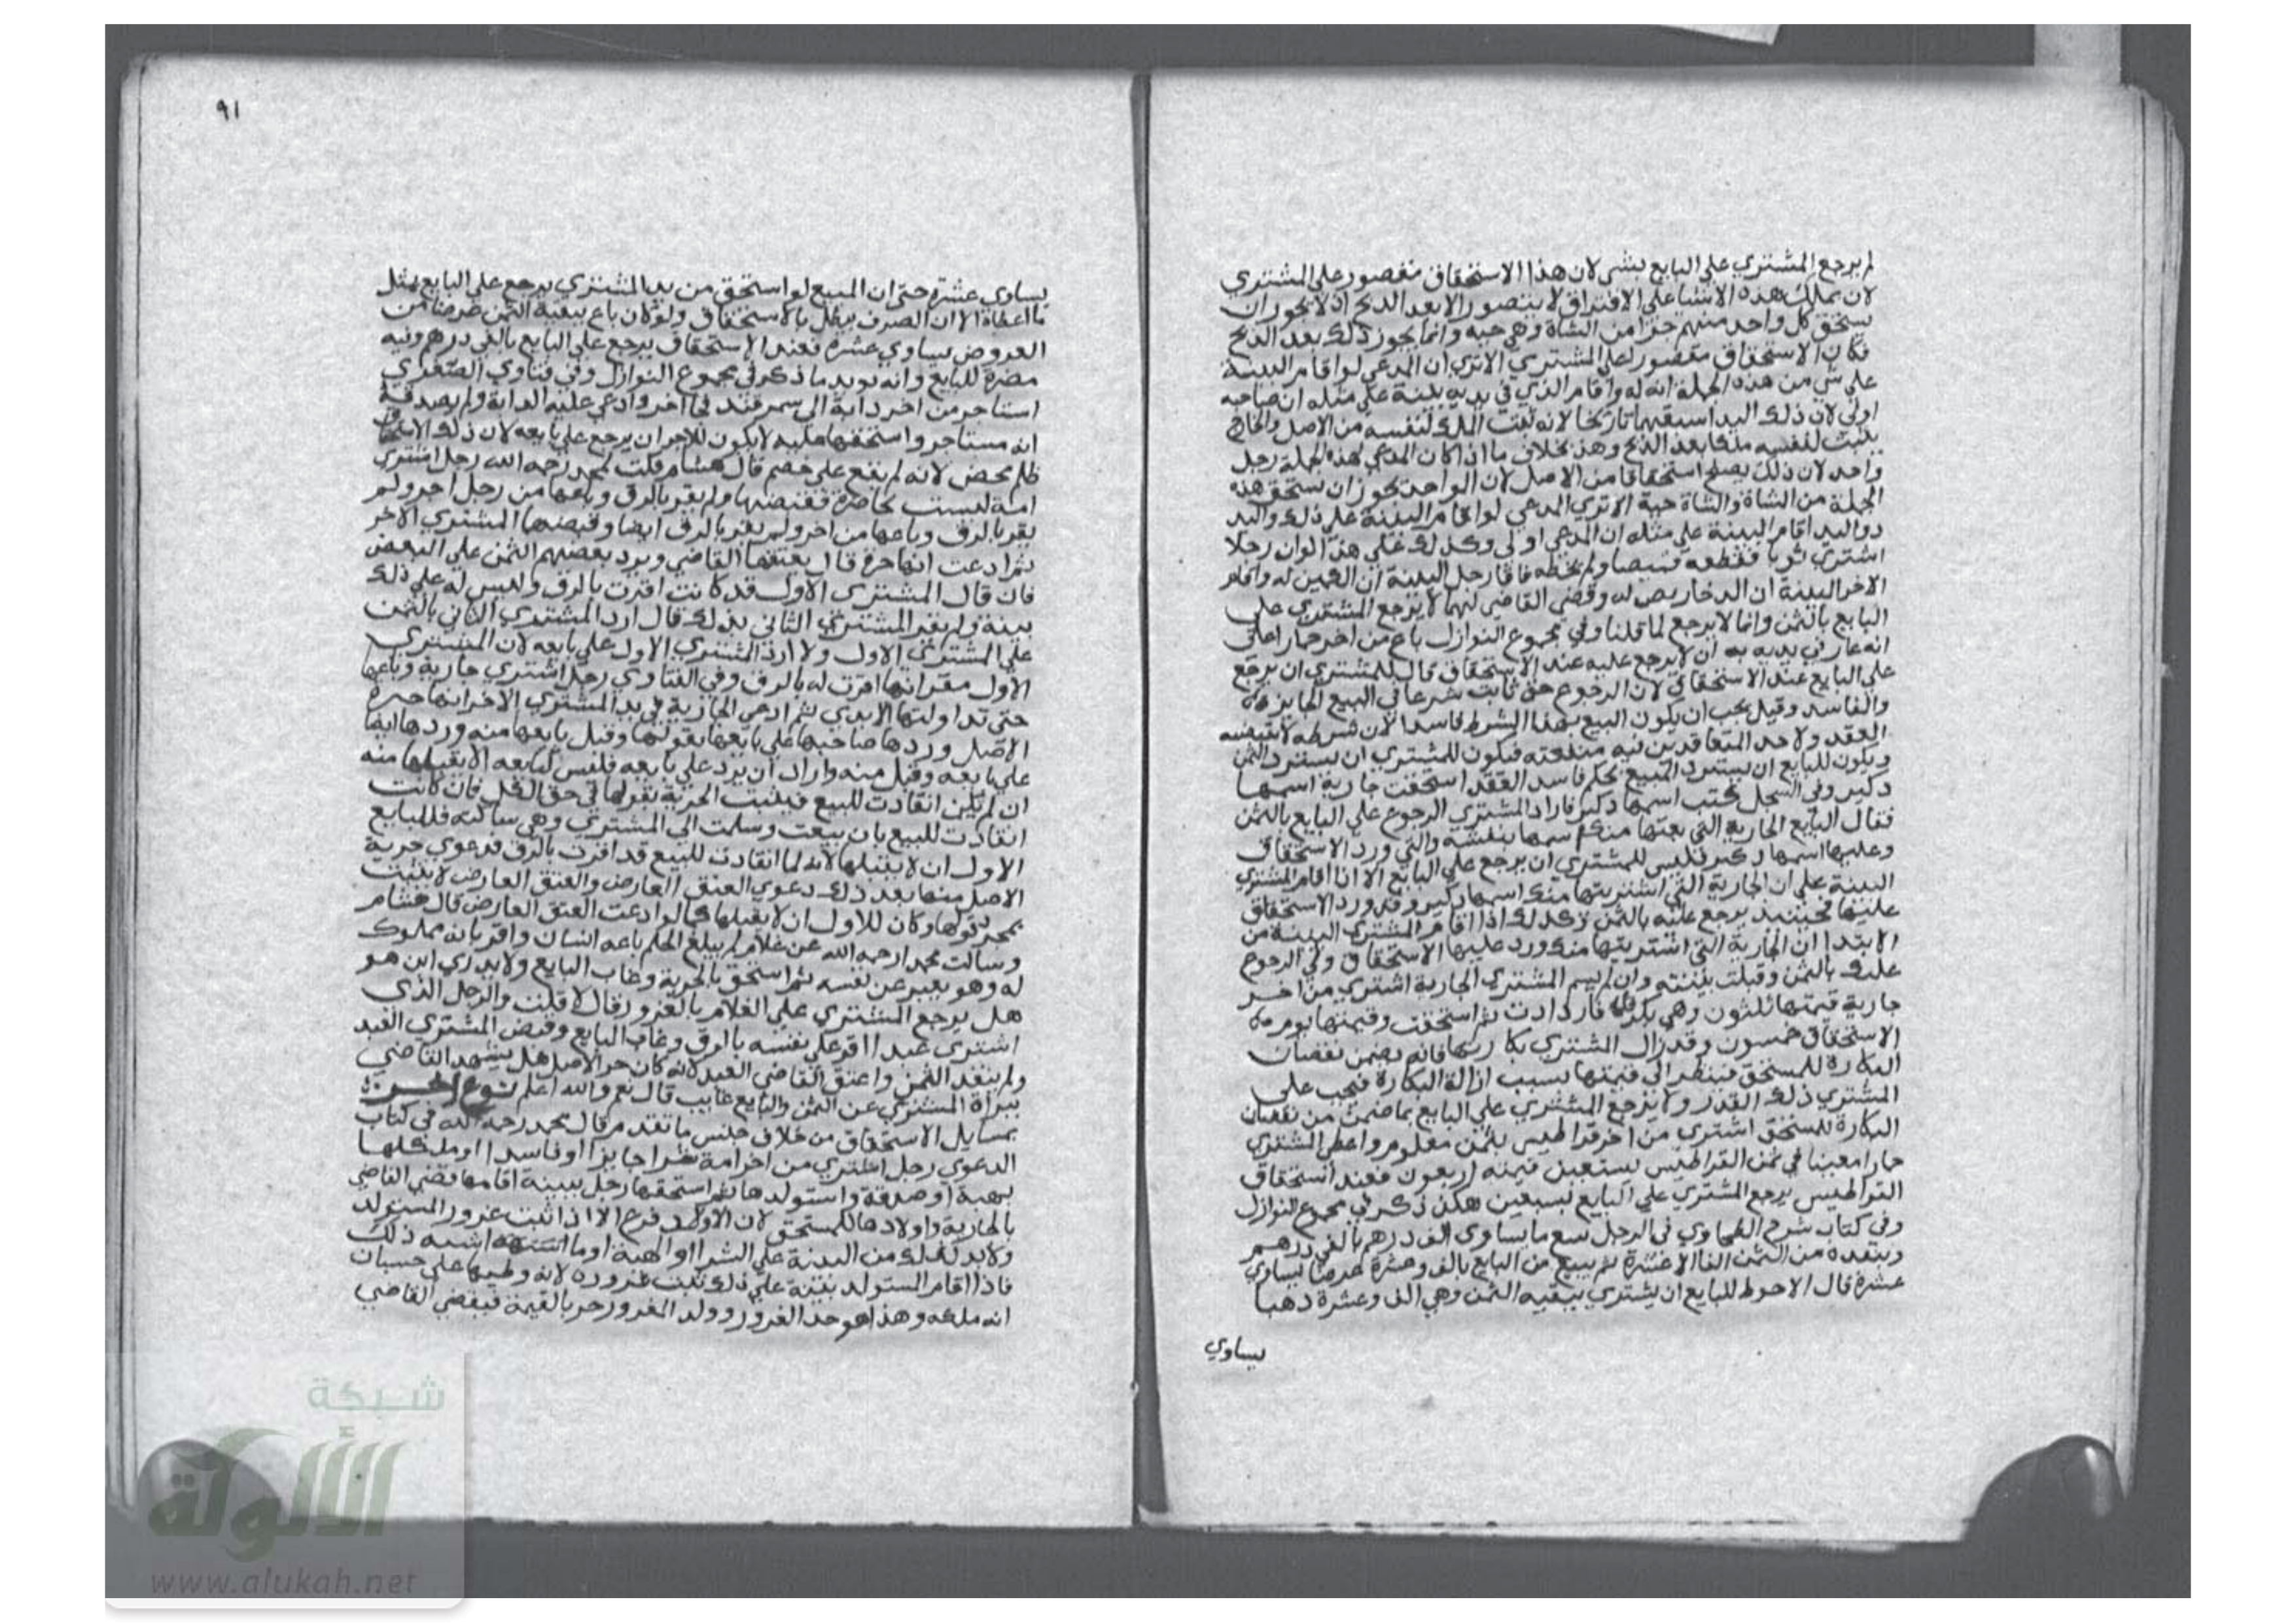 لم يرجع المشتري علي البايع بشي لان هذا الاستحقاق مقصور علي المشتري
لان تملك هذه الاشيا علي الافتراق لا يتصور الا بعد الذبح اذ لا يجوز ان
يستحق كل واحد منهم جزا من الشاة وهي حيه وانما يجوز ذلك بعد الذبح
فكان الاستحقاق مقصورا علي المشتري الاتري ان المدعي لو اقام البينة
علي شي من هذه الجملة انه له واقام الذي في يديه بينة علي مثله ان صاحبه
اولي لان ذلك اليد اسبقهما تاريخا لانه يثبت الملك لنفسه من الاصل والخارج
يثبت لنفسه ملكا بعد الذبح وهذا بخلاف ما اذا كان المدعي لهذه الجملة رجل
واحد لان ذلك يصلح استحقاقا من الاصل لان الواحد يجوز ان يستحق هذه
الجملة من الشاة والشاة حية الاتري المدعي لو اقام البينة علي ذلك واليد
ذو اليد اقام البينة علي مثله ان المدعي اولي وكذلك علي هذا لو ان رجلا
اشتري ثوبا فقطعه قميصا ولم يخطه فاقام رجل البينة ان الكمين له واقام
الاخر البينة ان الدخاريص له وقضي القاضي لهما لا يرجع المشتري علي
البايع بالثمن وانما لا يرجع لما قلنا وفي مجموع النوازل باع من اخر حمارا علي
انه عار في يديه به ان لا يرجع عليه عند الاستحقاق قال للمشتري ان يرجع
علي البايع عند الاستحقاق لان الرجوع حق ثابت شرعا في البيع الجايز
والفاسد وقيل يجب ان يكون البيع بهذا الشرط فاسدا لان شرطه لا يقتضيه
العقد ولاحد المتعاقدين فيه منفعة فيكون للمشتري ان يسترد الثمن
ويكون للبايع ان يسترد المبيع بحكم فاسد العقد استحقت جارية اسمها
دكبر وفي السجل كتب اسمها دكبر فاراد المشتري الرجوع علي البايع بالثمن
فقال البايع الجارية التي بعتها منك اسمها بنفشه والتي ورد الاستحقاق
وعليها اسمها دكبر فليس للمشتري ان يرجع علي البايع الا اذا اقام المشتري
البينة علي ان الجارية التي اشتريتها منك اسمها دكبر وقد ورد الاستحقاق
عليها فحينيذ يرجع عليه بالثمن وكذلك اذا اقام المشتري البينة من
الابتدا ان الجارية التي اشتريتها منك ورد عليها الاستحقاق ولي الرجوع
عليك بالثمن وقبلت بينته وان لم يسم المشتري الجارية اشتري من اخر
جارية قيمتها ثلثون وهي بكر فازدادت ثم استحقت وقيمتها يوم
الاستحقاق خمسون وقد زال المشتري بكارتها فانه يضمن نقصان
البكارة للمستحق فينظر الي قيمتها بسبب ازالة البكارة فيجب علي
المشتري ذلك القدر ولا يرجع المشتري علي البايع بما ضمن من نقصان
البكارة للمستحق اشتري من اخر قراطيس بثمن معلوم واعطي المشتري
حمارا معينا في ثمن القراطيس بسبعين قيمته اربعون فعند استحقاق
القراطيس يرجع المشتري علي البايع بسبعين هكذا ذكر في مجموع النوازل
وفي كتاب شرح الطحاوي في الرجل يبيع ما يساوي الف درهم بالفي درهم
وينقده من الثمن الفا الا عشرة ثم يبيع من البايع بالف وعشرة عرضا يساوي
عشرة قال الاحوط للبايع ان يشتري ببقيه الثمن وهي الف وعشرة ذهبا
يساوي
٩١
يساوي عشرة حتي ان المبيع لو استحق من يد المشتري يرجع علي البايع بمثل
ما اعطاه الا ان الصرف يبطل بالاستحقاق ولو كان باع ببقية الثمن عرضا من
العروض يساوي عشرة فعند الاستحقاق يرجع علي البايع بالفي درهم وفيه
مضرة للبايع وانه يويد ما ذكر في مجموع النوازل وفي فتاوي الصغري
استاجر من اخر دابة الي سمرقند فجا اخر وادعي عليه الدابة ولم يصدقه
انه مستاجر واستحقها عليه لا يكون للاجر ان يرجع علي بايعه لان ذلك الاستحقاق
ظلم محض لانه لم يقع علي خصم قال هشام قلت لمحمد رحمه الله رجل اشتري
امة ليست بحاضرة فقبضها ولم يقر بالرق وباعها من رجل اخر ولم
يقر بالرق وباعها من اخر ولم يقر بالرق ايضا وقبضها المشتري الاخر
ثم ادعت انها حرة قال يعتقها القاضي ويرد بعضهم الثمن علي البعض
فان قال المشتري الاول قد كانت اقرت بالرق وليس له علي ذلك
بينة ولم يقر المشتري الثاني بذلك قال ارد المشتري الثاني بالثمن
علي المشتري الاول ولا ارد المشتري الاول علي بايعه لان المشتري
الاول مقر انها اقرت له بالرق وفي الفتاوي رجل اشتري جارية وباعها
حتي تداولتها الايدي ثم ادعي الجارية في يد المشتري الاخر انها حرة
الاصل وردها صاحبها علي بايعها بقولها وقبل بايعها منه وردها ايضا
علي بايعه وقبل منه واراد ان يرد علي بايعه فليس لبايعه الا يقبلها منه
ان لم يكن انقادت للبيع فيثبت الحرية بقولها في حق الكل فان كانت
انقادت للبيع بان بيعت وسلمت الي المشتري وهي ساكته فللبايع
الاول ان لا يقبلها لانها لما انقادت للبيع قد اقرت بالرق فدعوي حرية
الاصل منها بعد ذلك دعوي العتق العارض والعتق العارض لا يثبت
بمجرد قولها وكان للاول ان لا يقبلها كما لو ادعت العتق العارض قال هشام
وسالت محمدا رحمه الله عن غلام لم يبلغ الحلم باعه انسان واقر بانه مملوك
له وهو يعبر عن نفسه ثم استحق بالحرية وغاب البايع ولا يدري اين هو
هل يرجع المشتري علي الغلام بالغرور قال لا قلت والرجل الذي
اشتري عبدا اقر علي نفسه بالرق وغاب البايع وقبض المشتري العبد
ولم ينقد الثمن واعتق القاضي العبد لانه كان حر الاصل هل يشهد القاضي
ببراة المشتري عن الثمن والبايع غايب قال نعم والله اعلم نوع اخر
بمسايل الاستحقاق من خلاف جنس ما تقدم قال محمد رحمه الله في كتاب
الدعوي رجل اشتري من اخر امة شرا جايزا او فاسدا او ملكها
بهبة او صدقة واستولدها ثم استحقها رجل ببينة اقامها قضي القاضي
بالجارية واولادها للمستحق لان الاولاد فرع الا اذا ثبت غرور المستولد
ولابد لذلك من البينة علي الشرا او الهبة او ما اشبه ذلك
فاذا اقام المستولد بينة علي ذلك ثبت غروره لانه وطيها علي حسبان
انه ملكه وهذا هو حد الغرور وولد المغرور حر بالقيمة فيقضي القاضي
شبكة
الألوكة
www.alukah.net